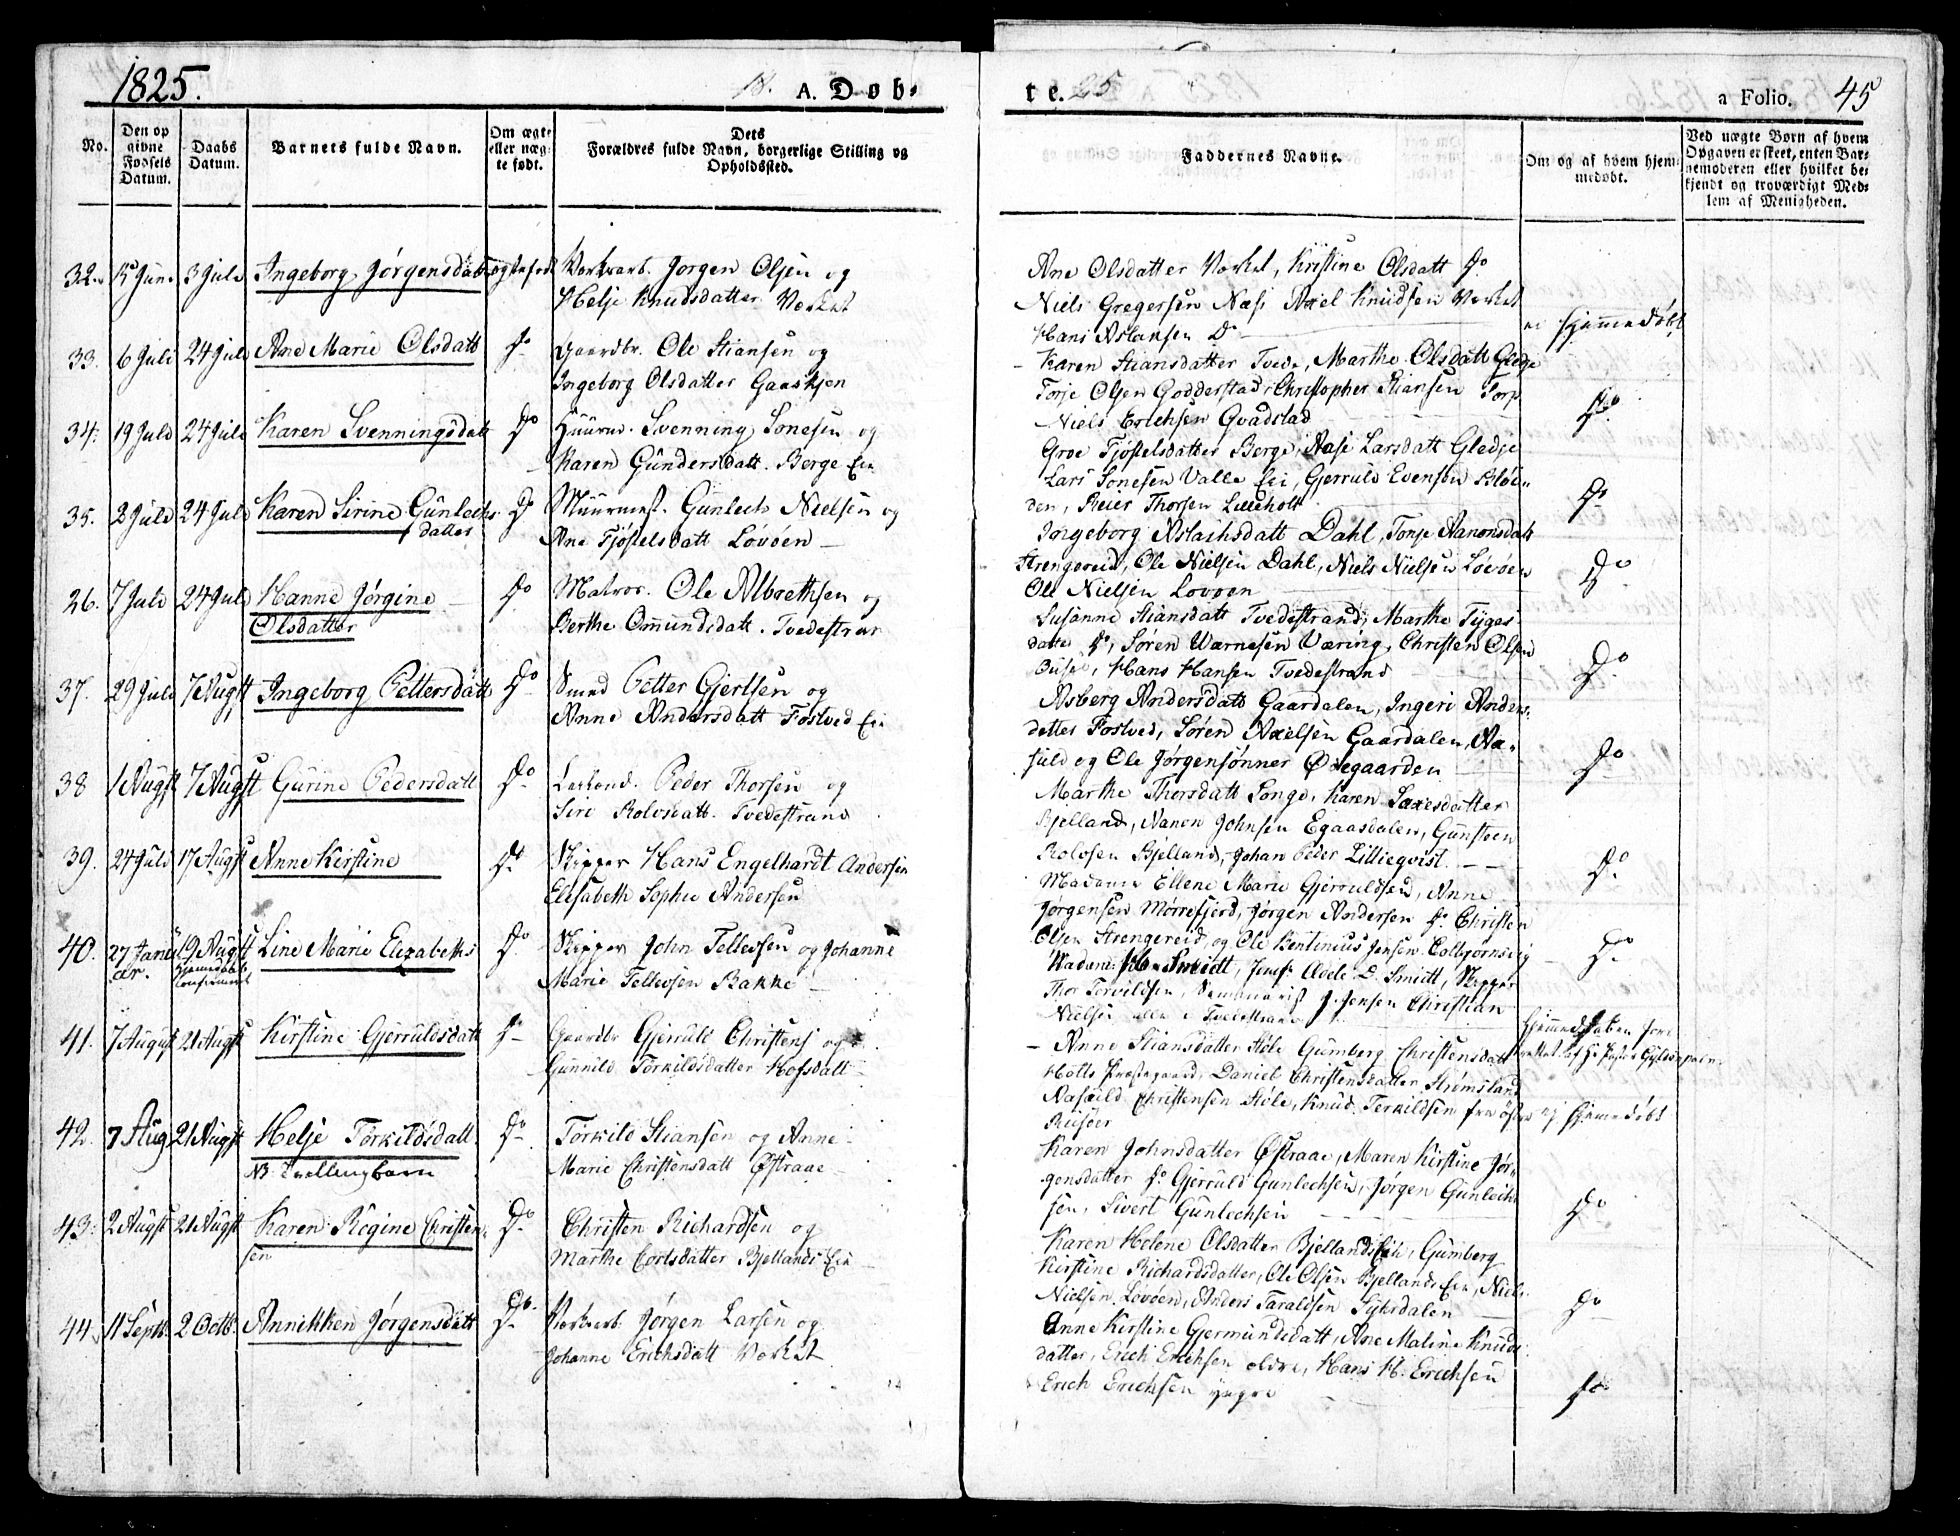 1825.
18. A. Døb-
te. 25
a Folio. 45
No.
Den op
givne
Fødsels
Datum.
Daabs
Datum.
Barnets fulde Navn.
Om ægte
eller næg-
te født.
Dets
Forældres fulde Navn, borgerlige Stilling og
Opholdssted.
Faddernes Navne.
Om og af hvem hjem-
medøbt.
Ved uægte Børn af hvem
Opgaven er skeet, enten Bar-
nemoderen eller hvilket be-
kjendt og troværdigt Med-
lem af Menigheden.
32. Juni 3 Juli Ingeborg Jørgensdatt ægtefød Værkarb. Jørgen Olsen og
Helje Knudsdatter Værket
Ane Olsdatter Værket, Kristine Olsdatt do
Niels Gregersen Næs Axel Knudsen Værket
Hans Aslaksen do
ei Hjemmedøbt
33. 6 Juli 24 Juli Ane Marie Olsdatt do Gaardbr. Ole Stiansen og
Ingeborg Olsdatter Gaaskjen
Karen Stiansdatter Tvede, Marthe Olsdatt Gledje
Torje Olsen Godderstad, Christopher Stiansen Torp
Niels Erichsen Qvadstad
do
34. 19 Juli 24 Juli Karen Svenningsdatt do Huusm. Svenning Sonesen og
Karen Gundersdatt. Berge Eie
Groe Tjøstelsdatter Berge, Aase Larsdatt Gledje
Lars Sonesen Valle Eie, Gjerruld Evensen
den, Reier Thorsen Lilleholt
do
35. 2 Juli 24 Juli Karen Sirine Gunlechs
datter
do Muurmest. Gunlech Nielsen og
Ane Tjøstelsdatt Løvøen
Ingeborg Aslachsdatt Dahl, Tonje Aanonsdatt
Strengereid, Ole Nielsen Dahl, Niels Nielsen Løvøen
Ole Nielsen Løvøen
do
26. 7 Juli 24 Juli Hanne Jørgine
Olsdatter
do Matros. Ole Albrethsen og
Berthe Omundsdatt. Tvedestran
Susanne Stiansdatt Tvedestrand, Marthe Tyges
datter do, Søren Værnesen Væring, Christen Olsen
Hans Hansen Tvedestrand
do
37. 29 Juli 7 Augst Ingeborg Pettersdatt do Smed Petter Gjertsen og
Anne Andersdatt Fostved Eie
Asberg Andersdatt Gaardalen, Ingeri Anders-
datter Fostved, Søren Axelsen Gaardalen, Aa-
suld og Ole Jørgensønner Ødegaarden
do
38 1 Augst 7 Augst Gurine Pedersdatt do Peder Thorsen og
Siri Rolvsdatt. Tvedestrand
Marthe Thorsdatt Songe, Karen Saxesdatter
Bjelland, Nanen Johnsen Egaasdalen, Gunsteen
Rolvsen Bjelland, Johan Peder Lillieqvist
do
39. 24 Juli 17 Augst Anne Kirstine do Skipper Hans Engelhardt Andersen
Elisabeth Sophie Andersen
Madame Ellene Marie Gjerruldsen, Anne
Jørgensen Mørrefjerd, Jørgen Andersen do Christen
Olsen Strengereid, og Ole Bentinius Jensen Colbjørnsvig
do
40. 27 Janu
ar.
19 Augst
Hjemdøbt
Confirmeret
Line Marie Elizabeths do Skipper John Tellevsen og Johanne
Marie Tellevsen Bakke
Madame Smidt, Jomf. Adele D. Smidt, Skipper
Thor Torvildsen, Seminarist J. Jensen Christian
Nielsen alle i Tvedestrand
Hjemmedaaben for
rettet af Hr Pastor Gyldenpalm
41. 7 August 21 Augst Kirstine Gjerruldsdatt do Gaardbr Gjerruld Christens og
Gunnild Torkildsdatter Hofsdatt
Anne Stiansdatter Støle Gumberg Christensdatt
Holts Præstegaard, Daniel Christensdatter Strømsland
Aasuld Christensen Støle, Knud Terkildsen fra Øster
Risøer
ej Hjemedøbt
42. 7 Aug 21 Augst Helje Torkildsdatt
NB. Tvellingbarn
do Torkild Stiansen og Anne
Marie Christensdatt Østraae
Karen Johnsdatter Østraae, Maren Kirstine Jør-
gensdatter do Gjerruld Gunlechsen, Jørgen Gunlech
sen, Sivert Gunlechsen
do
43. 2 Augst 21 Augst Karen Regine Christen-
sen
do Christen Richardsen og
Marthe Cortsdatter Bjellands Eie
Karen Helene Olsdatter Bjellands Eie, Gumberg
Kirstine Richardsdatter, Ole Olsen Bjellands Eie, Niels
Nielsen Løvøen, Anders Taraldsen
do
44. 11 Septb. 2 Octb. Annikken Jørgensdatt do Værkarb. Jørgen Larsen og
Johanne Erichsdatt Værket
Anne Kirstine Gjermundsdatt, Ane Malene Knuds
datter, Erich Erichsen ældre, Hans H. Erichsen
Erich Erichsen yngre
do